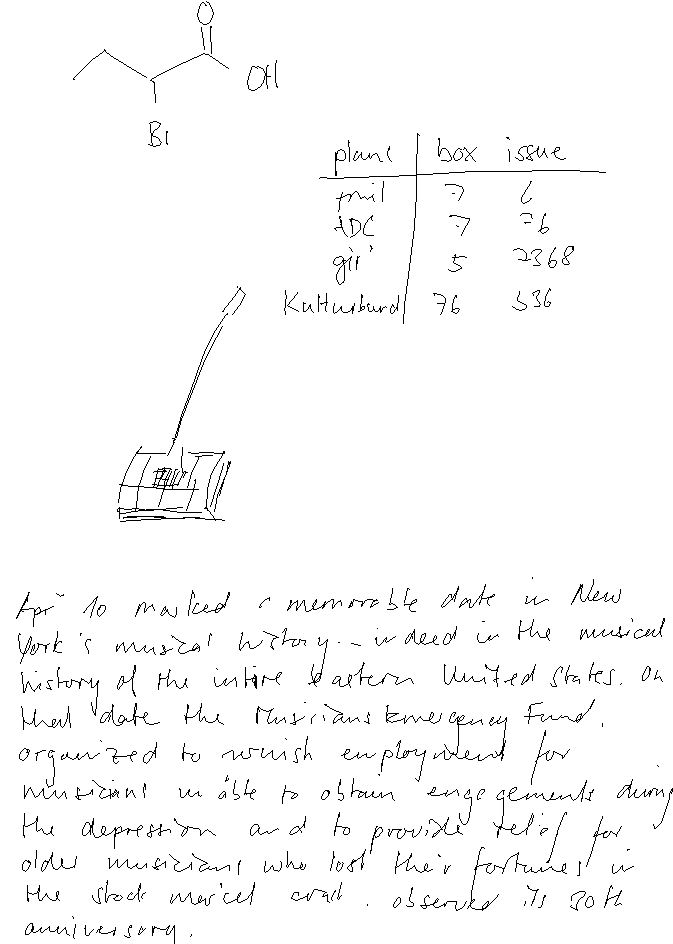 O
OH
Br
plane box issue
7 6
ADC 7 76
5 2368
Kulturbund 76 536
April 10 marked a memorable date in New
York's musical history - indeed in the musical
history of the entire Eastern United States. On
that date the Musicians Emergency Fund,
organized to furnish employment for
musicians unable to obtain engagements during
the depression and to provide relief for
older musicians who lost their fortunes in
the stock market crash, observed its 30th
anniversary.